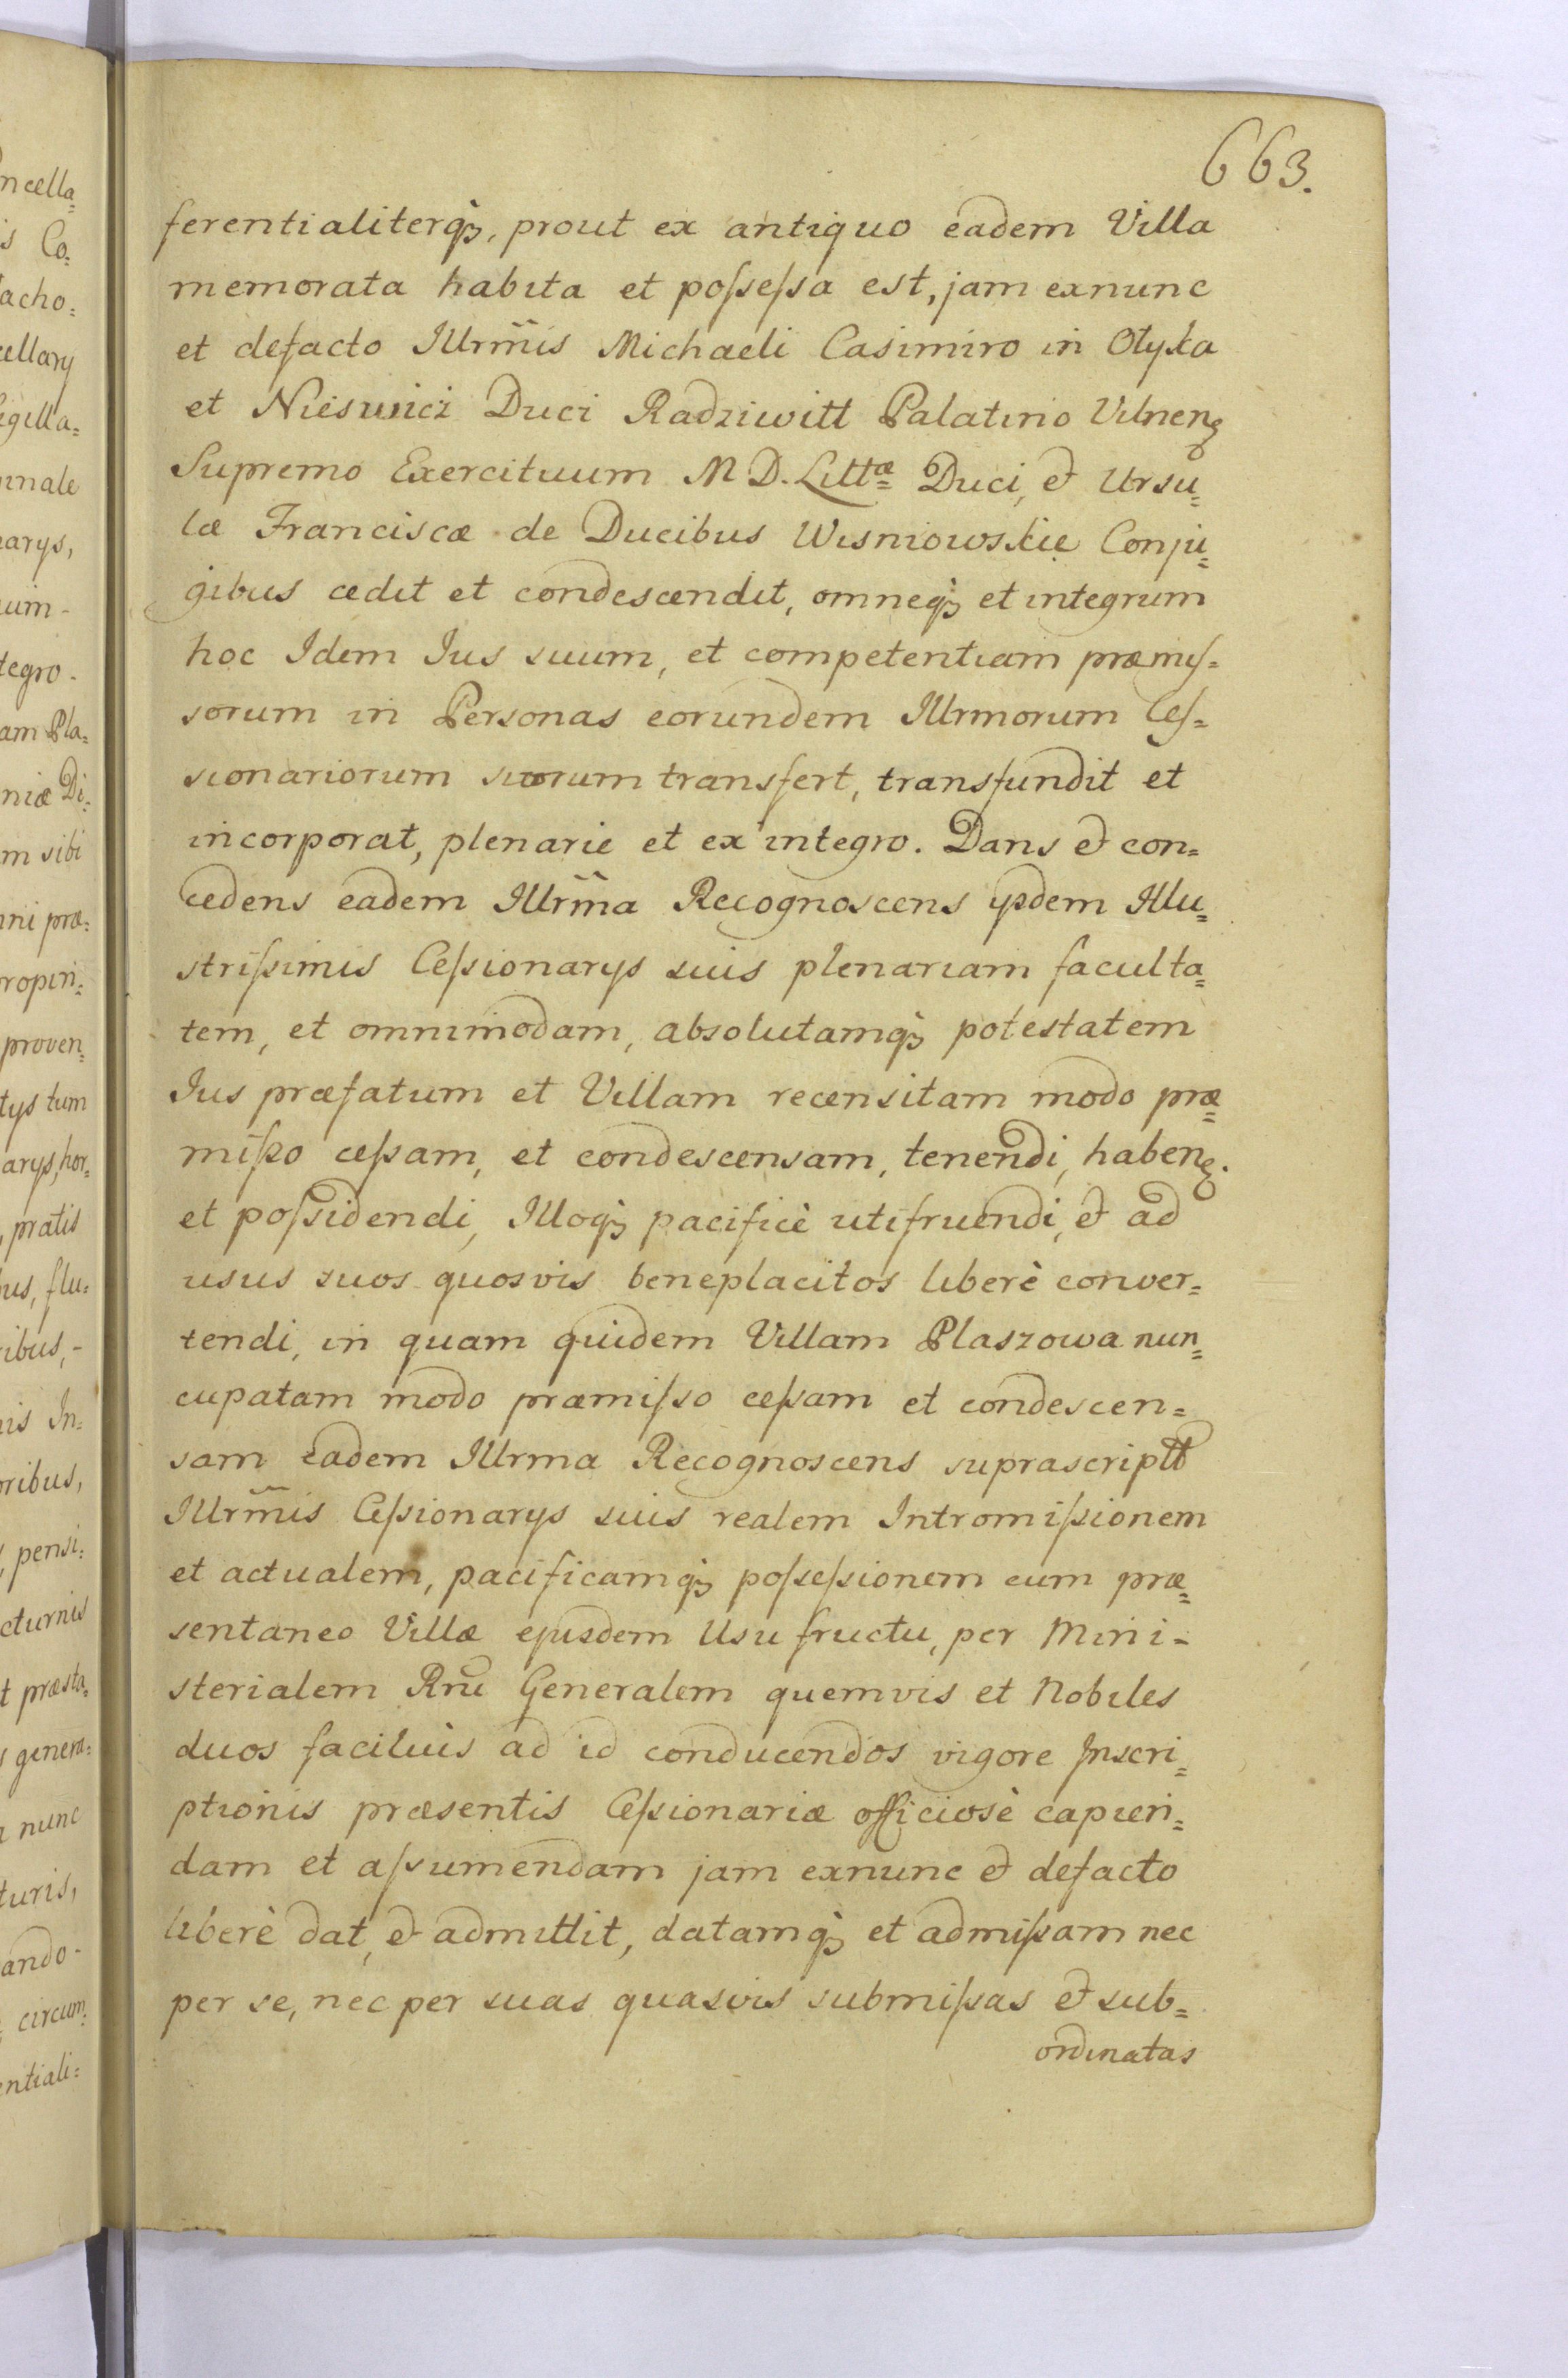 663.
ferentialiterq̃ꝫ, prout ex antiquo eadem Villa
memorata habita et poſseſsa est, jam exnunc
et defacto Illrm̃is Michaeli Casimiro in Olyka
et Nieswiez Duci Radziwiłł Palatino Vilnenꝫ
Supremo Exercituum M D. Littæ Duci, et Ursu=
læ Franciscæ de Ducibus Wisniowskie Conju=
gibus cedit et condescendit, omneq̃ꝫ et integrum
hoc Idem Ius suum, et competentiam præmiſ=
sorum in Personas eorundem Illrmorum Ceſ=
sionariorum suorum transfert, transfundit et
incorporat, plenarie et ex integro. Dans et con=
cedens eadem Illrm̃a Recognoscens ysdem Illu=
striſsimis Ceſsionarys suis plenariam faculta=
tem, et omnimodam, absolutamq̃ꝫ potestatem
Ius præfatum et Villam recensitam modo præ=
miſso ceſsam, et condescensam, tenendi, habenꝫ.
et poſsidendi, Illoq̃ꝫ pacificè utifruendi, et ad
usus suos quosvis beneplacitos liberè conver=
tendi, in quam quidem Villam Plaszowa nun=
cupatam modo præmiſso ceſsam et condescen=
sam eadem Illrma Recognoscens suprascriptt
Illrm̃is Ceſsionarys suis realem Intromiſsionem
et actualem, pacificamq̃ꝫ poſseſsionem cum præ=
sentaneo Villæ ejusdem Usufructu, per Mini=
sterialem Rñi Generalem quemvis et Nobiles
duos faciluis ad id conducendos vigore Inscri=
ptionis præsentis Ceſsionariæ officiosè capien=
dam et aſsumendam jam exnunc et defacto
liberè dat, et admittit, datamq̃ꝫ et admiſsam nec
per se, nec per suas quasvis submiſsas et sub=
ordinatas